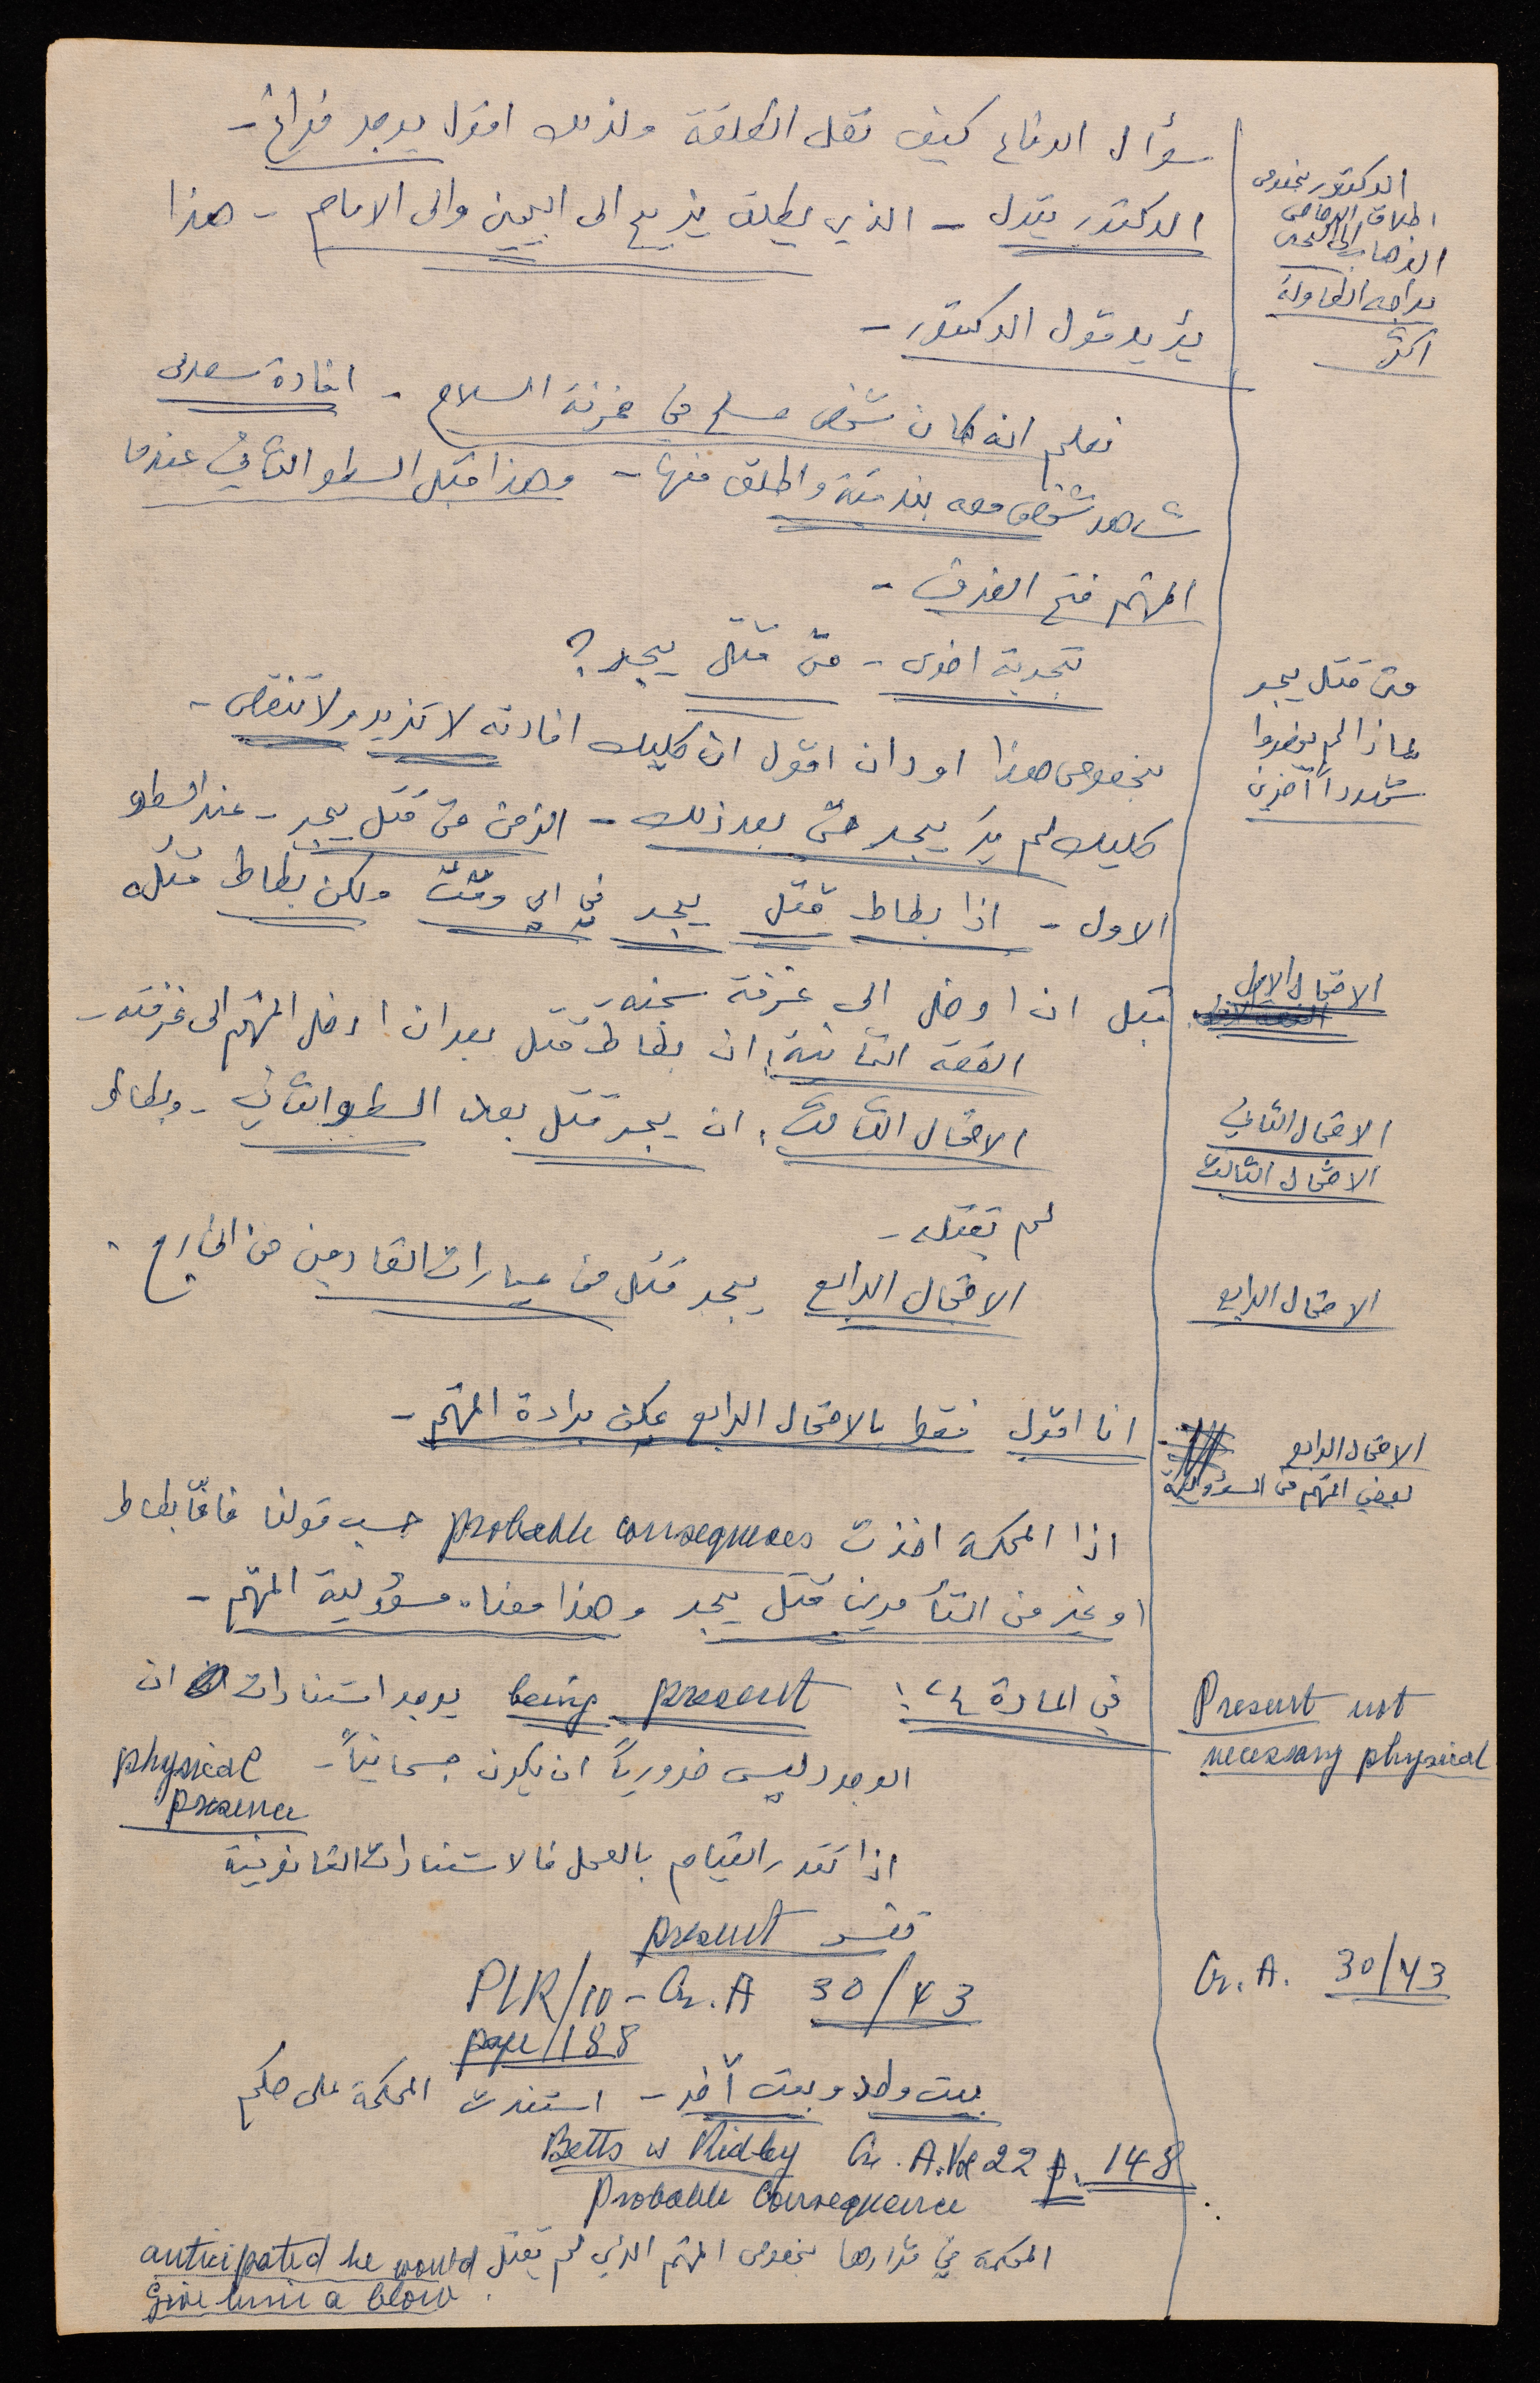 سؤال الدفاع كيف نقل الطلقة ولذلك اقول يوجد فراغ -
الدكتور بخصوص
اطلاق الرصاص
الذهاب الى اليمين
الدكتور يقول - الذي يطلق يزيح الى اليمين والى الامام - هذا
اكثر
يؤيد قول الدكتور -
نعلم انه كان شخص مسلح في مخزنة السلاح - افادة سعدي
شاهد شخص معه بندقية واطلق منها - وهذا قبل السطو الثاني عندما
المتهم فتح الغرف -
تجربة اخرى - متى قتل يجر ؟
متى قتل يجر
لماذا لم يحضروا
شهوداً آخرين
بخصوص هذا اود ان اقول ان كليك افادته لا تزيد ولا تنقص -
كليك لم ير يجر حتى بعد ذلك - الزمن متى قتل يجر - عند السطو
الاول - اذا بطاط قتل يجر في اي وقت ولكن بطاط قتله
الاحتمال الاول
قبل ان ادخل الى غرفة سجنه -
القصة الثانية : ان بطاط قتل بعد ان ادخل المتهم الى غرفته -
الاحتمال الثاني
الاحتمال الثالث : ان يجر قتل بعد السطو الثاني - وبطاط
الاحتمال الثالث
لم يقتله -
الاحتمال الرابع يجر قتل من عيارات القادمين من الخارج .
الاحتمال الرابع
انا اقول فقط بالاحتمال الرابع يمكن براءة المتهم -
الاحتمال الرابع
يعفي المتهم من المسؤولية
اذا المحكمة اخذت probable consequences حسب قولنا فان بطاط
او غير من المتآمرين قتل يجر وهذا معناه مسؤولية المتهم -
في المادة ٢٤ : being present يوجد استنادات ان
Present not
necessary physical
الوجود ليس ضرورياً ان يكون جسمانياً - physical
presence
اذا تقدر القيام بالعمل فالاستنادات القانونية
تفسر present
PLR/10 - Cr. A 30/43
Cr. A. 30/43
page/188
بيت واحد وبيت آخر - استندت المحكمة على حكم
Betts vs Ridley Cr. A. Vol 22 p. 148
Probable Consequence
المحكمة في قرارها بخصوص المتهم الذي لم يقتل anticipated he would
give him a blow .